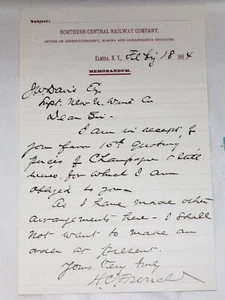 Subject:
NORTHERN CENTRAL RAILWAY COMPANY,
OFFICE OF SUPERINTENDENT, ELMIRA AND CANANDAIGUA DIVISIONS.
ELMIRA, N. Y., 18 188
MEMORANDUM.
J W Davis Esq
Supt.
Dear Sir-
I am in receipt of
your favor 15th quoting
prices of Champagne & still
wines, for which I am
obliged to you-
As I have made other
arrangements here - I shall
not want to make an
order at present.
Yours Very truly